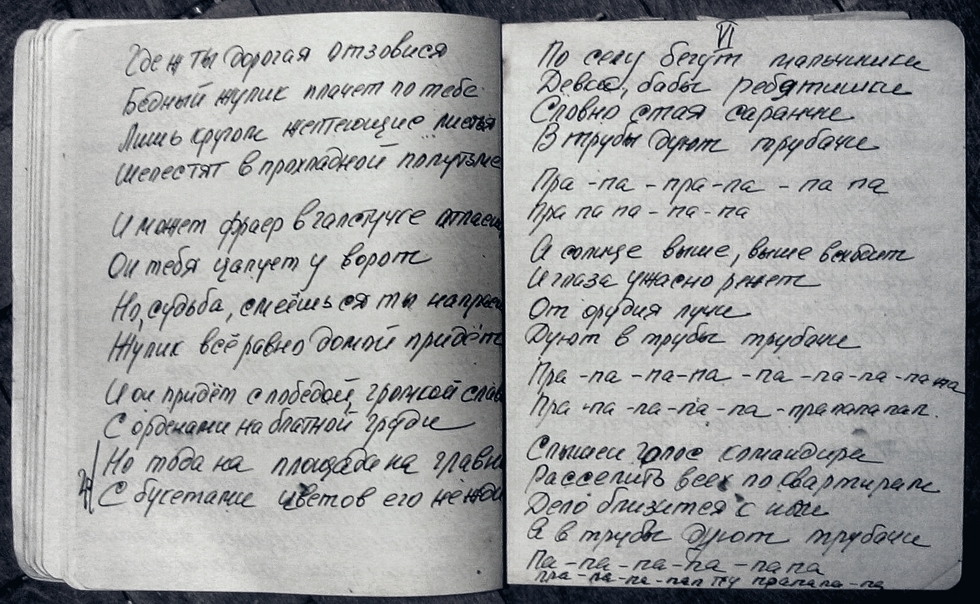 Где ж ты дорогая отзовися
Бедный жулик плачет по тебе
Лишь кругом желтеющие листья
Шелестят в прохладной полутьме
И может фраер в галстучке атласн
Он тебя цалует у ворот
Но, судьба, смеёшься ты напрасн
Жулик всё равно домой придёт
И он придёт с победой, громкой слав
С орденами на блатной груди
Но тода на площаде на главн
С букетами цветов его не жди
VI
По селу бегут мальчишки
Девки, бабы ребятишки
Словно стая саранчи
В трубы дуют трубачи
Пра - па - пра - па - па па
Пра па па - па - па
А солнце выше, выше всходит
И глаза ужасно режет
От орудия лучи
Дуют в трубы трубачи
Пра - па - па - па - па - па - па - па па
Пра - па - па - па - па - прапапапап.
Слышен голос командира
Расселить всех по квартирам
Дело близится к ночи
А в трубы дуют трубачи
Па - па - па - па - папа
пра - па - па - пап прапапа - па